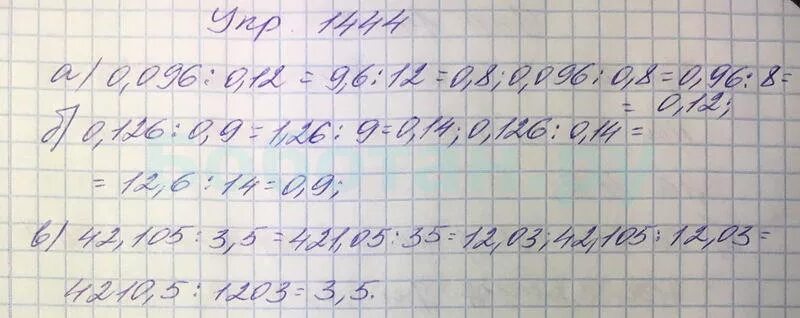 Упр. 1444
а) 0,096 : 0,12 = 9,6 : 12 = 0,8; 0,096 : 0,8 = 0,96 : 8 =
= 0,12;
б) 0,126 : 0,9 = 1,26 : 9 = 0,14; 0,126 : 0,14 =
= 12,6 : 14 = 0,9;
в) 42,105 : 3,5 = 421,05 : 35 = 12,03; 42,105 : 12,03 =
4210,5 : 1203 = 3,5.